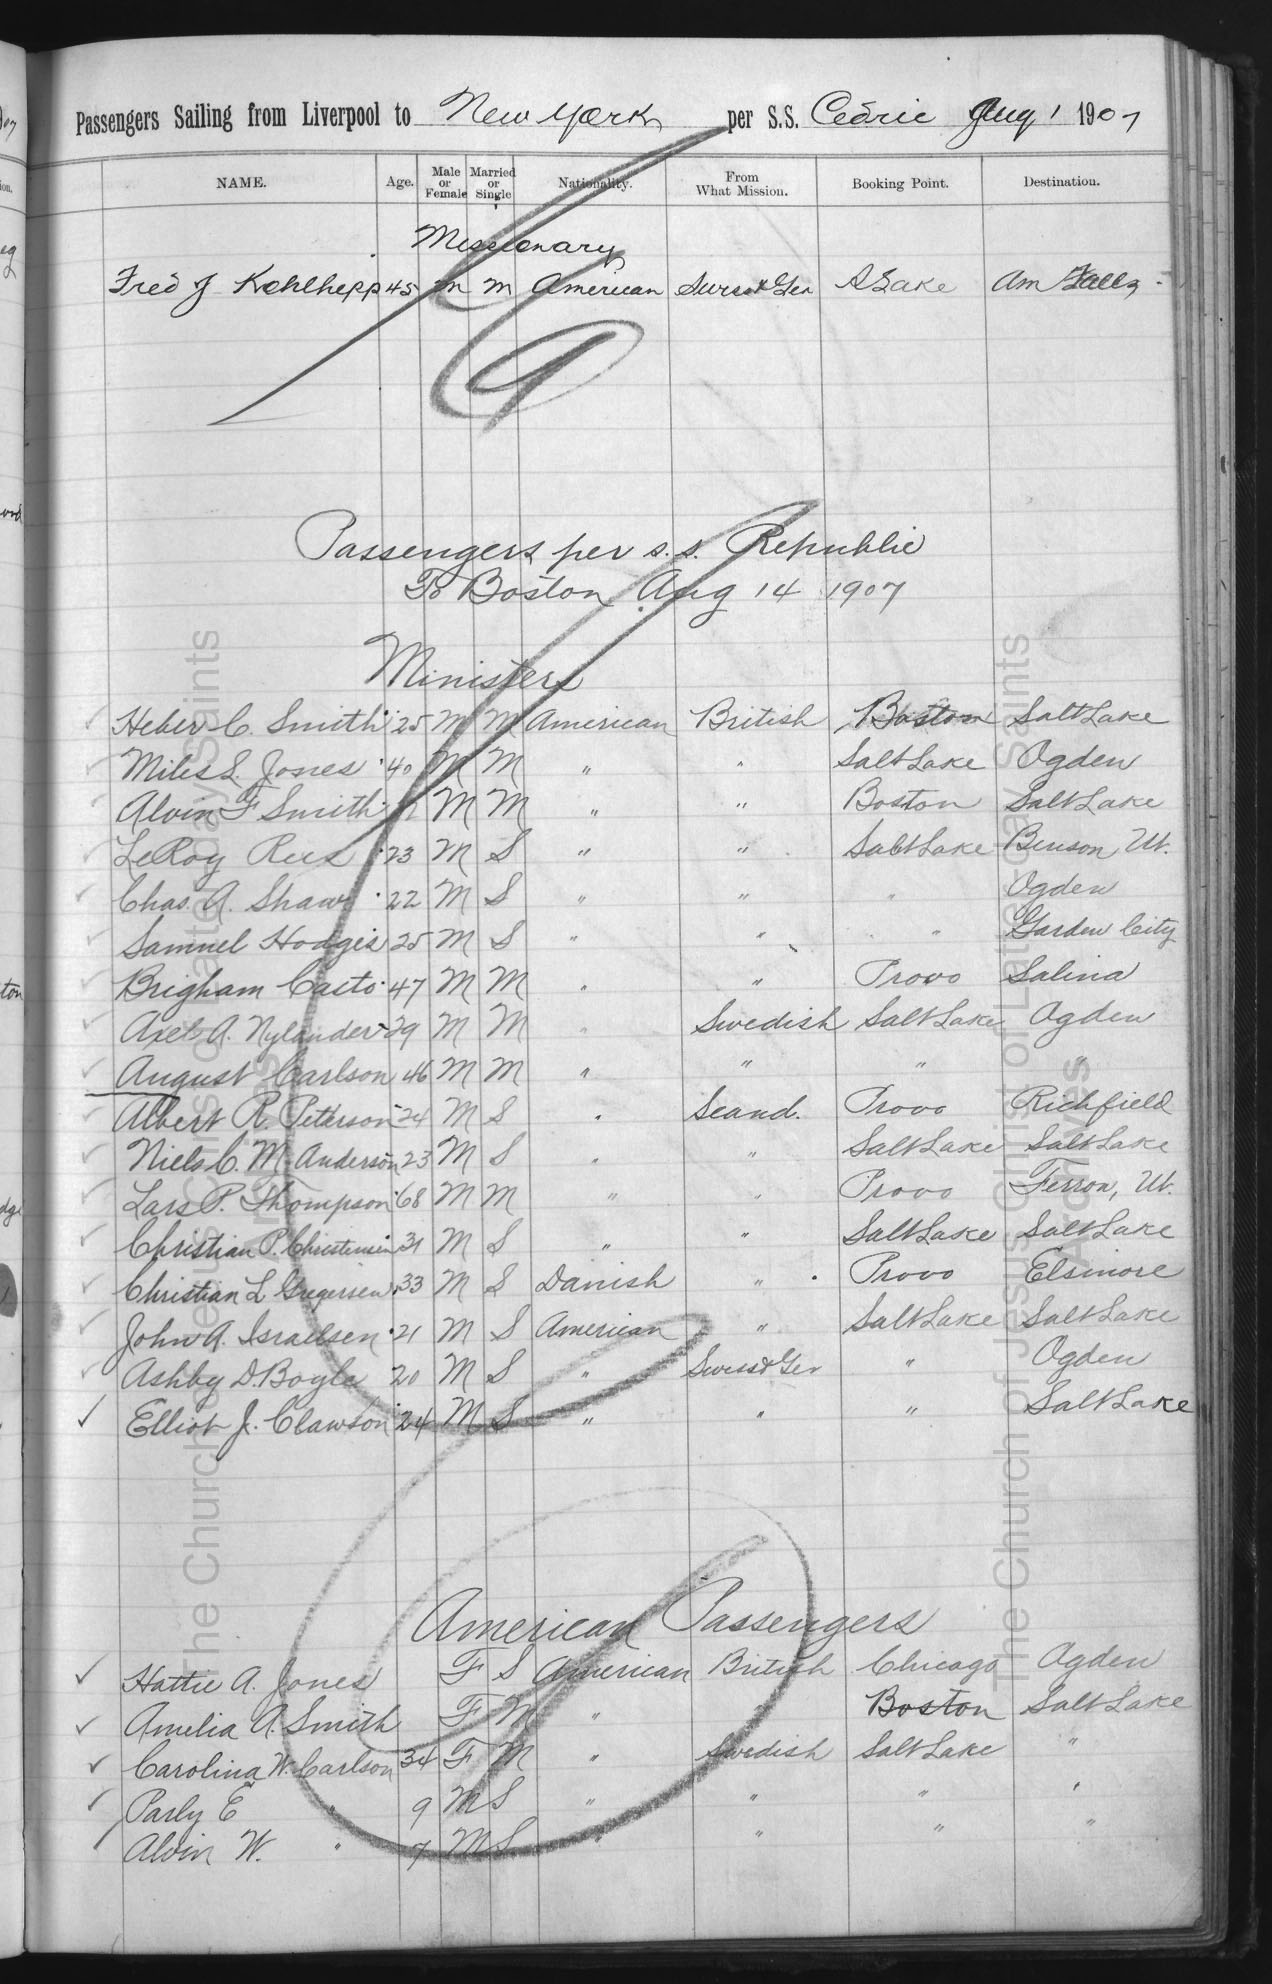 Passengers Sailing from Liverpool to New York per S.S. Cedric Aug 1 1907
NAME. Age. Male or Female Married or Single Nationality. From What Mission. Booking Point. Destination.
Missionary
Fred J Kohlhepp 45 M M American Swiss & Ger S Lake Am Falls
Passengers per s.s. Republic
To Boston Aug 14 1907
Ministers
Heber C. Smith 25 M M American British Boston Salt Lake
Miles L. Jones 40 M M " " Salt Lake Ogden
Alvin F Smith M M " " Boston Salt Lake
LeRoy Rees 23 M S " " Salt Lake Benson Ut.
Chas. A. Shaw 22 M S " " " Ogden
Samuel Hodges 25 M S " " " Garden City
Brigham Casto 47 M M " " Provo Salina
Axel A. Nylander 29 M M " Swedish Salt Lake Ogden
August Carlson 46 M M " " " "
Albert R. Peterson 24 M S " Scand. Provo Richfield
Niels C. M. Anderson 23 M S " " Salt Lake Salt Lake
Lars P. Thompson 68 M M " " Provo Ferron, Ut.
Christian P. Christensen 31 M S " " Salt Lake Salt Lake
Christian L Gregersen 33 M S Danish " Provo Elsinore
John A. Israelsen 21 M S American " Salt Lake Salt Lake
Ashby D. Boyle 20 M S " Swiss & Ger " Ogden
Elliot J. Clawson 24 M S " " " Salt Lake
American Passengers
Hattie A. Jones F S American British Chicago Ogden
Amelia A. Smith F M " " Boston Salt Lake
Carolina W. Carlson 34 F M " Swedish Salt Lake "
Parly E " 9 M S " " " "
Alvin W. " 7 M S " " " "
The Church of Jesus Christ of Latter-day Saints
Archives
The Church of Jesus Christ of Latter-day Saints
Archives